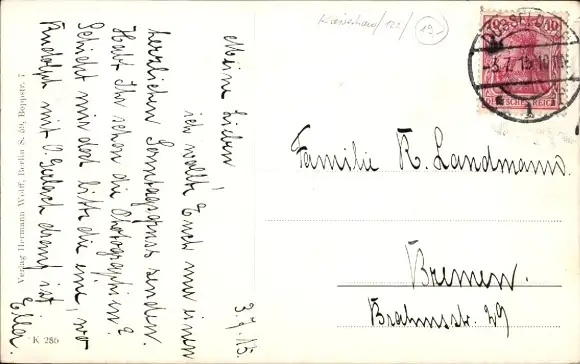 3.7.15.
Meine Lieben
ich wollte Euch nur einen
herzlichen Sonntagsgruss senden.
Habt Ihr schon die Photographien?
Schickt mir doch bitte die eine, wo
Rudolph mit O. Gerlach drauf ist
Ella.
Verlag Hermann Wolff, Berlin S. 59, Boppstr. 7
K 286
19.-
DÜSSELDORF
3.7.15 10
1
DEUTSCHES REICH
10
Familie R. Landmann.
Bremen.
Brahmsstr. 29